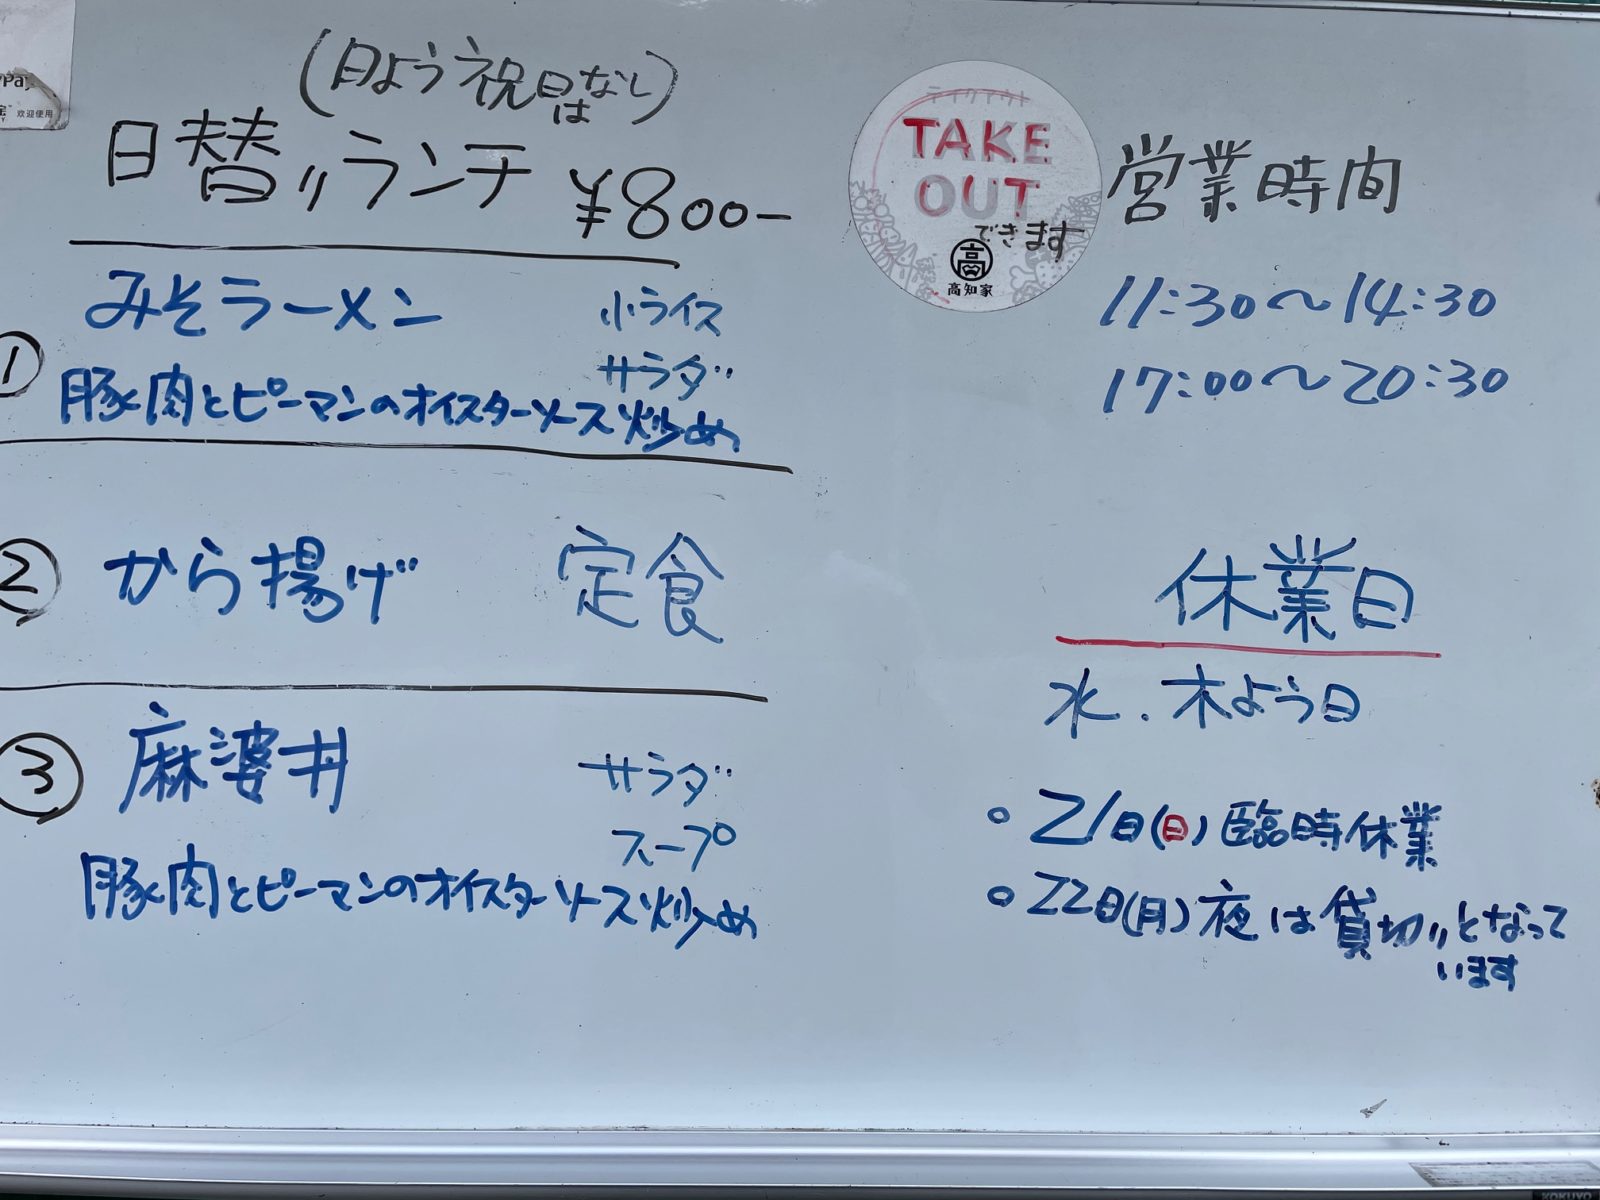 (日よう祝日はなし)
日替りランチ ¥800-
① みそラーメン 小ライス
サラダ
豚肉とピーマンのオイスターソース炒め
② から揚げ 定食
③ 麻婆丼 サラダ
スープ
豚肉とピーマンのオイスターソース炒め
テイクアウト
TAKE
OUT
できます
高知家
営業時間
11:30〜14:30
17:00〜20:30
休業日
水.木よう日
○21日(日)臨時休業
○22日(月)夜は貸切りとなって
います
欢迎使用
KOKUYO